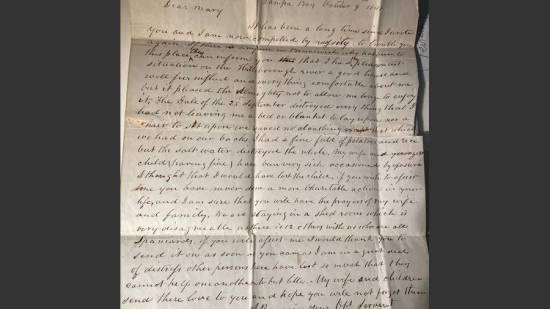 Dear Mary Tampa Bay October 9 184
It has been a long time since I wrote
you and I am now compelled by necessity to trouble you
again
this place can inform you that I the pleasantest
situation on the Hillsborough river a good house and
well furnished and everything comfortable about me
but it pleased the Almighty not to allow me long to enjoy
it, The Gale of the 25 September destroyed every thing that I
had not leaving me a bed or blanket to lay upon nor a
chair to sit upon we saved no cloathing but that which
we had on our backs I had a fine field of potatoes and rice
but the salt water destroyed the whole. My wife and youngest
child (having five) have been very sick occasioned by exposure
I thought that I would have lost the child. if you will assist
me you have never done a more Charitable action in your
life, and I am sure that you will have the prayers of my wife
and family. We are staying in a shed room which is
very disagreable as there is 12 others with us who are all
Spaniards. if you will assist me I would thank you to
send it on as soon as you can as I am in a great deal
of distress other persons here have lost so much that they
cannot help one another but little. My wife and children
send there love to you and hope you will not forget them
your Obt Servant